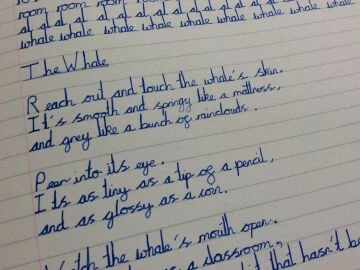 room room room room room room
al al al al al al al al al al
whale whale whale whale whale whale whale whale
The Whale
Reach out and touch the whale's skin.
It's smooth and springy like a mattress,
and grey like a bunch of rainclouds.
Peer into its eye.
Its as tiny as a tip of a pencil,
and as glossy as a coin.
the whale's mouth open.
as a classroom,
that hasn't